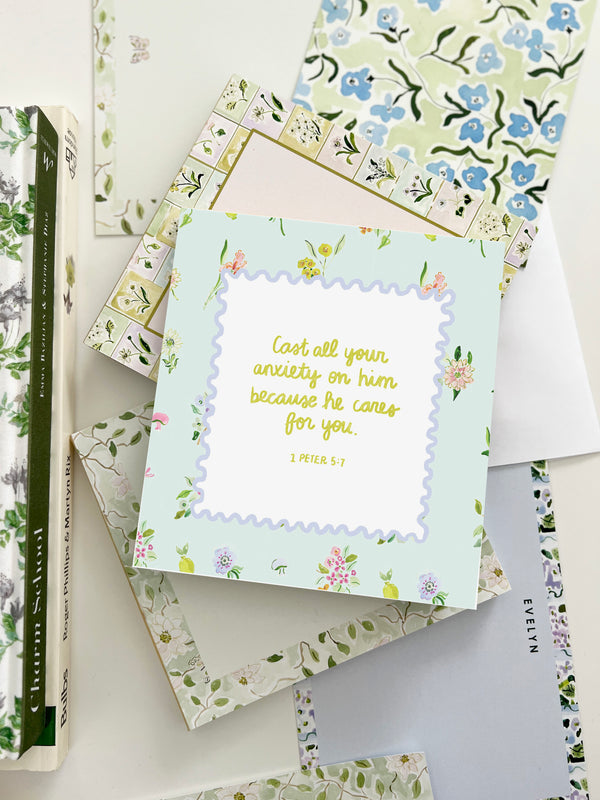 Cast all your
anxiety on him
because he cares
for you.
1 PETER 5:7
Charm School
EMMA BAZILIAN & STEPHANIE DIAZ
Bulbs
Roger Phillips & Martyn Rix
EVELYN